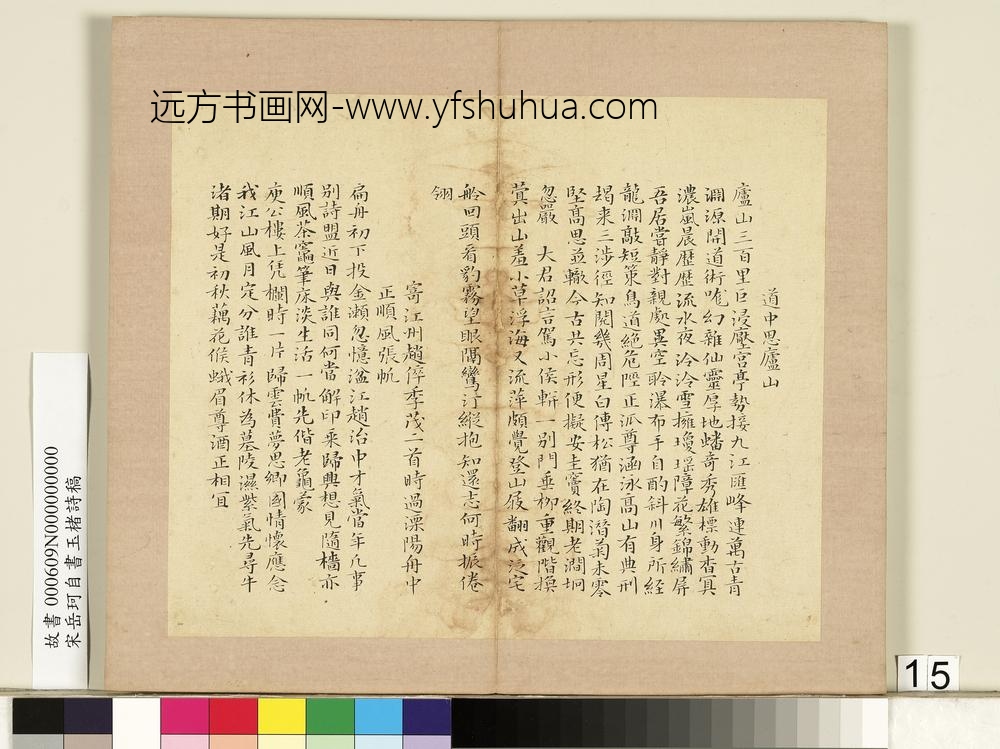 远方书画网-www.yfshuhua.com
道中思廬山
廬山三百里巨浸壓宫亭勢接九江匯峰連萬古青
淵源開道術唯幻雜仙靈厚地蟠奇秀雄標動杳冥
濃嵐晨歴歴流水夜泠泠雪擁瓊瑶障花繁錦繡屏
吾居嘗静對親處異空聆瀑布手自酌斜川身所經
龍淵敲短策鳥道絶危陘正派尊涵泳髙山有典刑
朅来三涉徑知閱幾周星白傅松猶在陶潛菊未零
堅髙思並轍今古共忘形便擬安圭竇終期老澗坰
忽嚴 大君詔言駕小侯軿一别門垂柳重觀階換
蓂出山羞小草浮海又流萍頗覺登山屐翻成泛宅
舲回頭看豹霧望眼隔鸞汀縱抱知還志何時振倦
翎
寄江州趙倅季茂二首時過溧陽舟中
正順風張帆
扁舟初下投金瀬忽憶湓江趙治中才氣當年凡事
别詩盟近日與誰同何當解印乘歸興想見隨檣亦
順風茶竈筆床淡生活一帆先偕老龜蒙
庾公樓上凭欄時一片歸雲費夢思鄉國情懷應念
我江山風月定分誰青衫休為墓陵濕紫氣先尋牛
渚期好是初秋藕花候蛾眉尊酒正相宜
故書 000609N000000000
宋岳珂自書玉楮詩稿
15